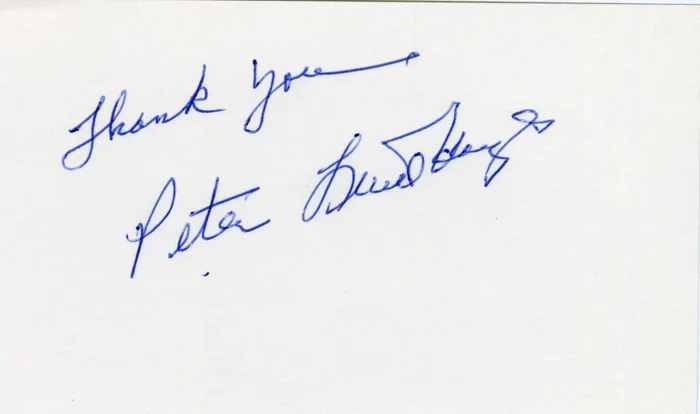 Thank You
Peter